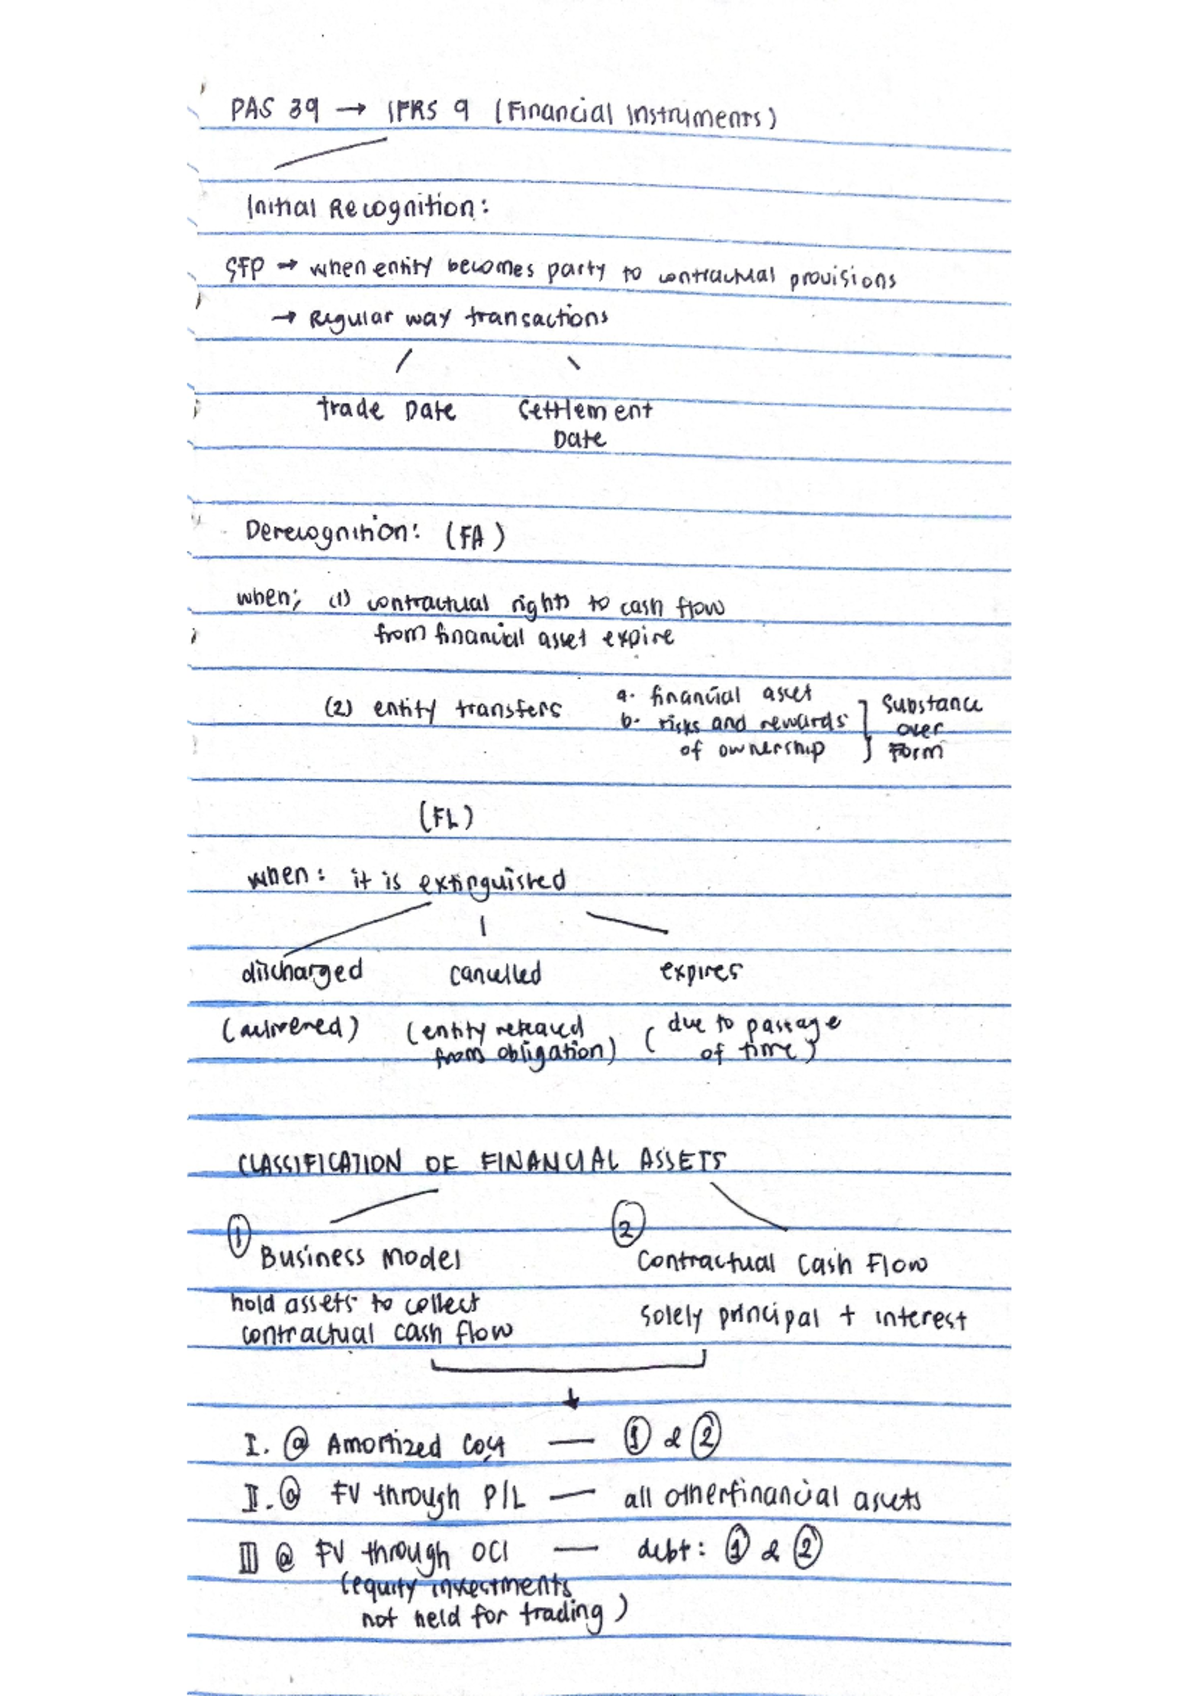 PAS 39 → IFRS 9 (Financial Instruments)
Initial Recognition:
SFP → when entity becomes party to contractual provisions
→ Regular way transactions
trade Date   Settlement Date
Derecognition: (FA)
when; (1) contractual rights to cash flow
from financial asset expire
(2) entity transfers   a. financial asset
b. risks and rewards of ownership
Substance over Form
(FL)
when: it is extinguished
discharged   cancelled   expires
(delivered)   (entity released from obligation)   (due to passage of time)
CLASSIFICATION OF FINANCIAL ASSETS
① Business Model   ② Contractual Cash Flow
hold assets to collect contractual cash flow   solely principal + interest
I. @ Amortized Cost — ① & ②
II. @ FV through P/L — all other financial assets
III @ FV through OCI — debt: ① & ②
(equity investments
not held for trading)